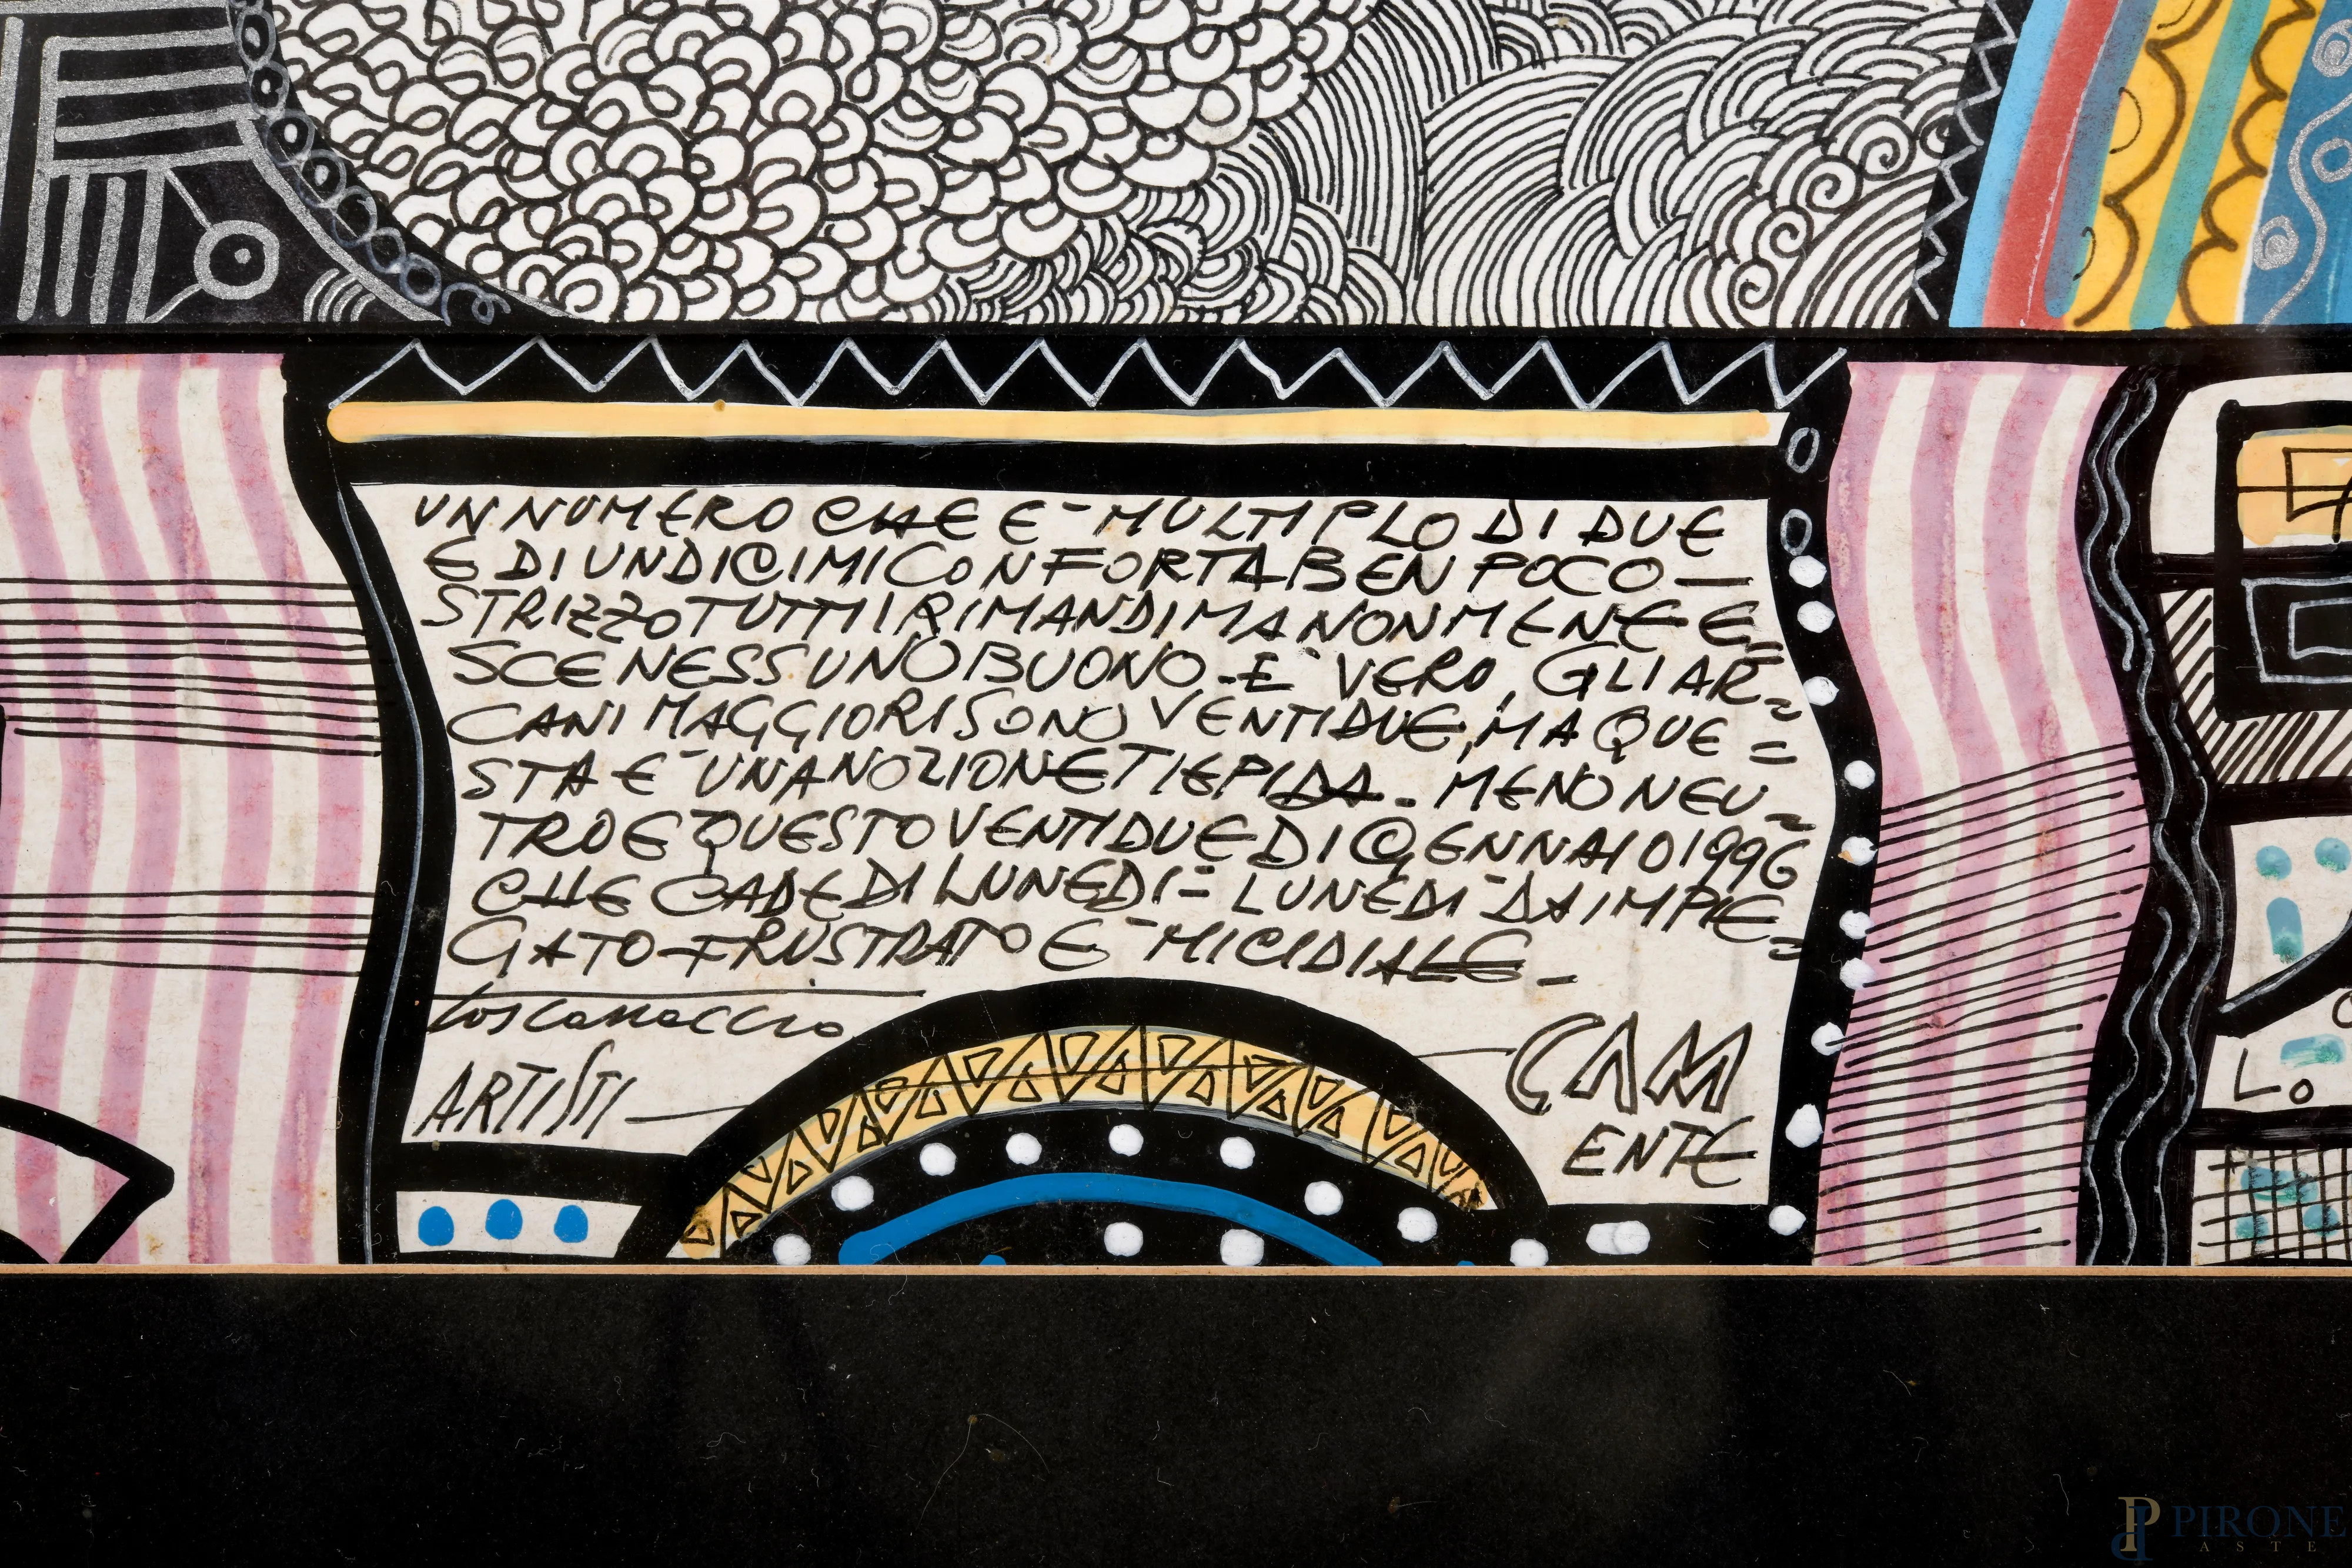 UN NUMERO CHE E¯ MULTIPLO DI DUE
E DI UNDICI MI CONFORTA BEN POCO —
STRIZZO TUTTI I RIMANDI MA NON ME NE E=
SCE NESSUNO BUONO. E¯ VERO, GLI AR=
CANI MAGGIORI SONO VENTIDUE, MA QUE=
STA E¯ UNA NOZIONE TIEPIDA. MENO NEU=
TRO E¯ QUESTO VENTIDUE DI GENNAIO 1996
CHE CADE DI LUNEDI= LUNEDI¯ DA IMPIE=
GATO FRUSTRATO E¯ MICIDIALE. -
ARTISTI —
— CAM
ENTE
LO
PIRONE
ASTE